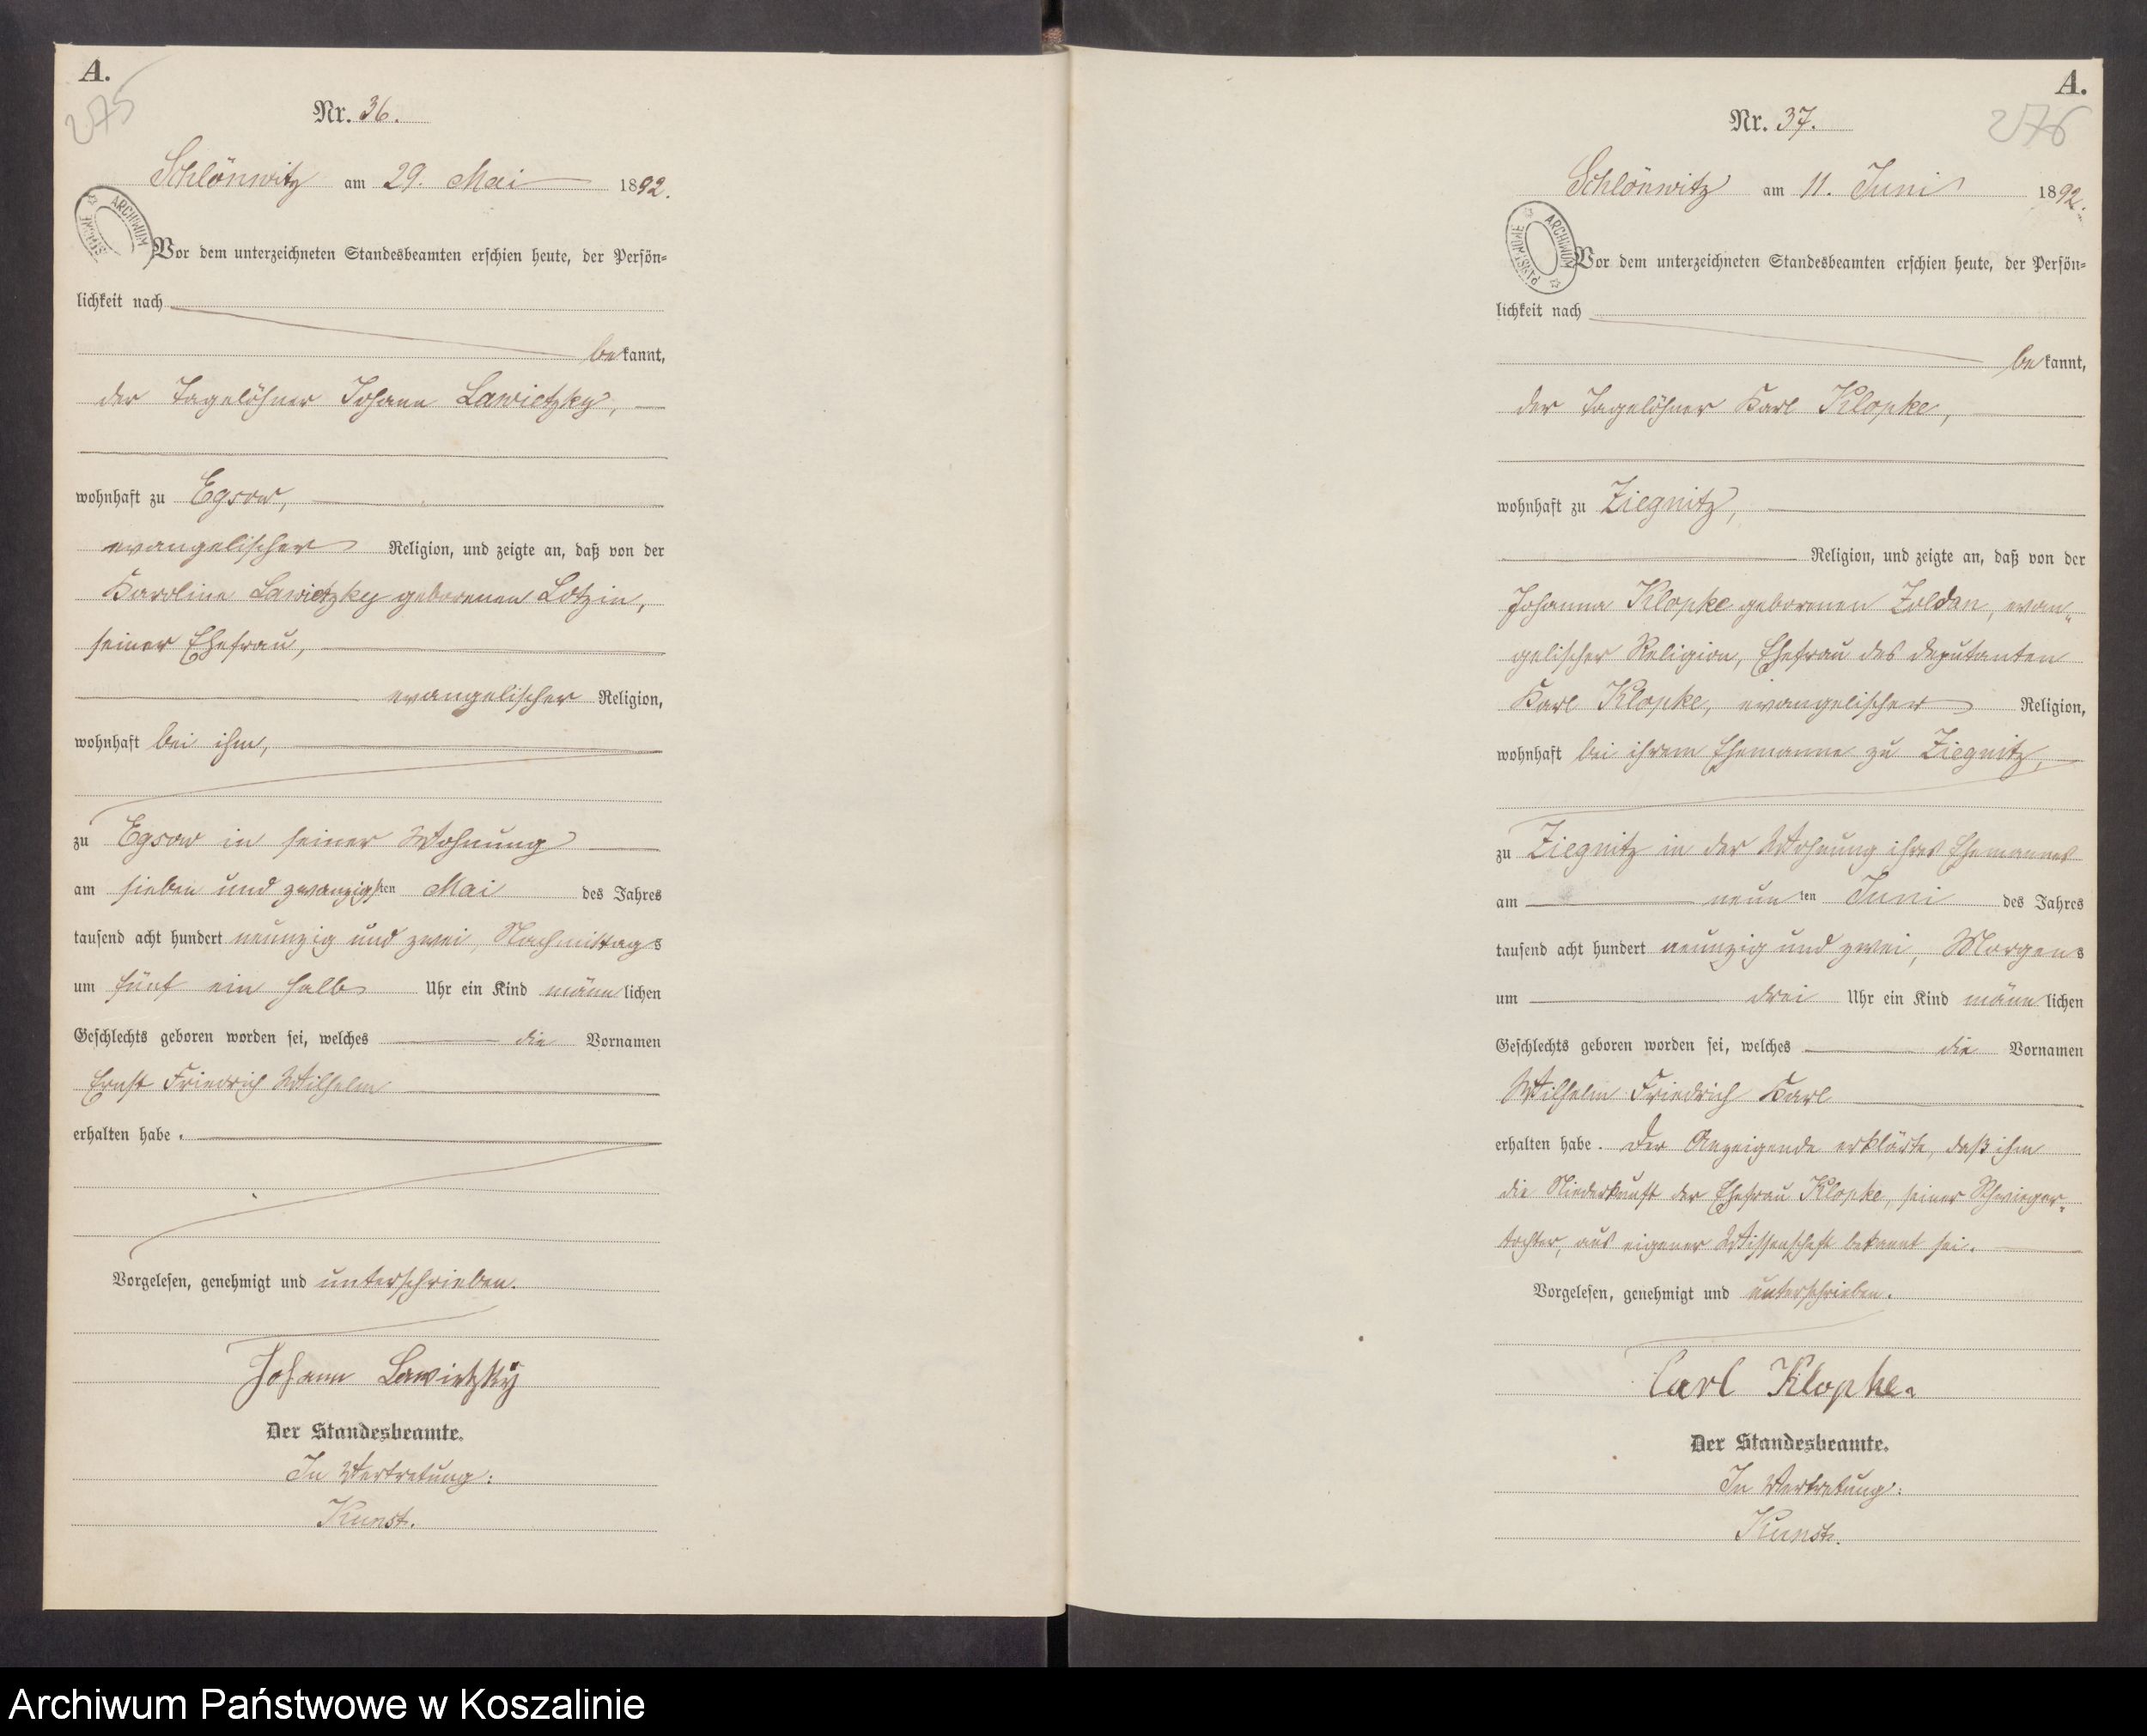 A.
275
Nr. 36.
Schlönwitz am 29. Mai 1892.
ARCHIWUM
Vor dem unterzeichneten Standesbeamten erschien heute, der Persön=
lichkeit nach
bekannt,
der Tagelöhner Johann Lawietzky,
wohnhaft zu Egsow,
evangelischer Religion, und zeigte an, daß von der
Karoline Lawietzky geborenen Lotzin,
seiner Ehefrau,
evangelischer Religion,
wohnhaft bei ihm,
zu Egsow in seiner Wohnung
am sieben und zwanzigsten Mai des Jahres
tausend acht hundert neunzig und zwei, Nachmittags
um fünf ein halb Uhr ein Kind männlichen
Geschlechts geboren worden sei, welches die Vornamen
Ernst Friedrich Wilhelm
erhalten habe.
Vorgelesen, genehmigt und unterschrieben.
Johann Lawietzky
Der Standesbeamte.
In Vertretung:
Kunst.
A.
276
Nr. 37.
Schlönwitz am 11. Juni 1892.
ARCHIWUM PAŃSTWOWE
Vor dem unterzeichneten Standesbeamten erschien heute, der Persön=
lichkeit nach
bekannt,
der Tagelöhner Karl Klopke,
wohnhaft zu Ziegnitz,
Religion, und zeigte an, daß von der
Johanna Klopke geborenen Zoldan, evan=
gelischer Religion, Ehefrau des Deputanten
Karl Klopke, evangelischer Religion,
wohnhaft bei ihrem Ehemanne zu Ziegnitz,
zu Ziegnitz in der Wohnung ihres Ehemannes
am neunten Juni des Jahres
tausend acht hundert neunzig und zwei, Morgens
um drei Uhr ein Kind männlichen
Geschlechts geboren worden sei, welches die Vornamen
Wilhelm Friedrich Karl
erhalten habe. Der Anzeigende erklärte, daß ihm
die Niederkunft der Ehefrau Klopke, seiner Schwieger=
tochter, aus eigener Wissenschaft bekannt sei.
Vorgelesen, genehmigt und unterschrieben.
Carl Klopke.
Der Standesbeamte.
In Vertretung:
Kunst.
Archiwum Państwowe w Koszalinie